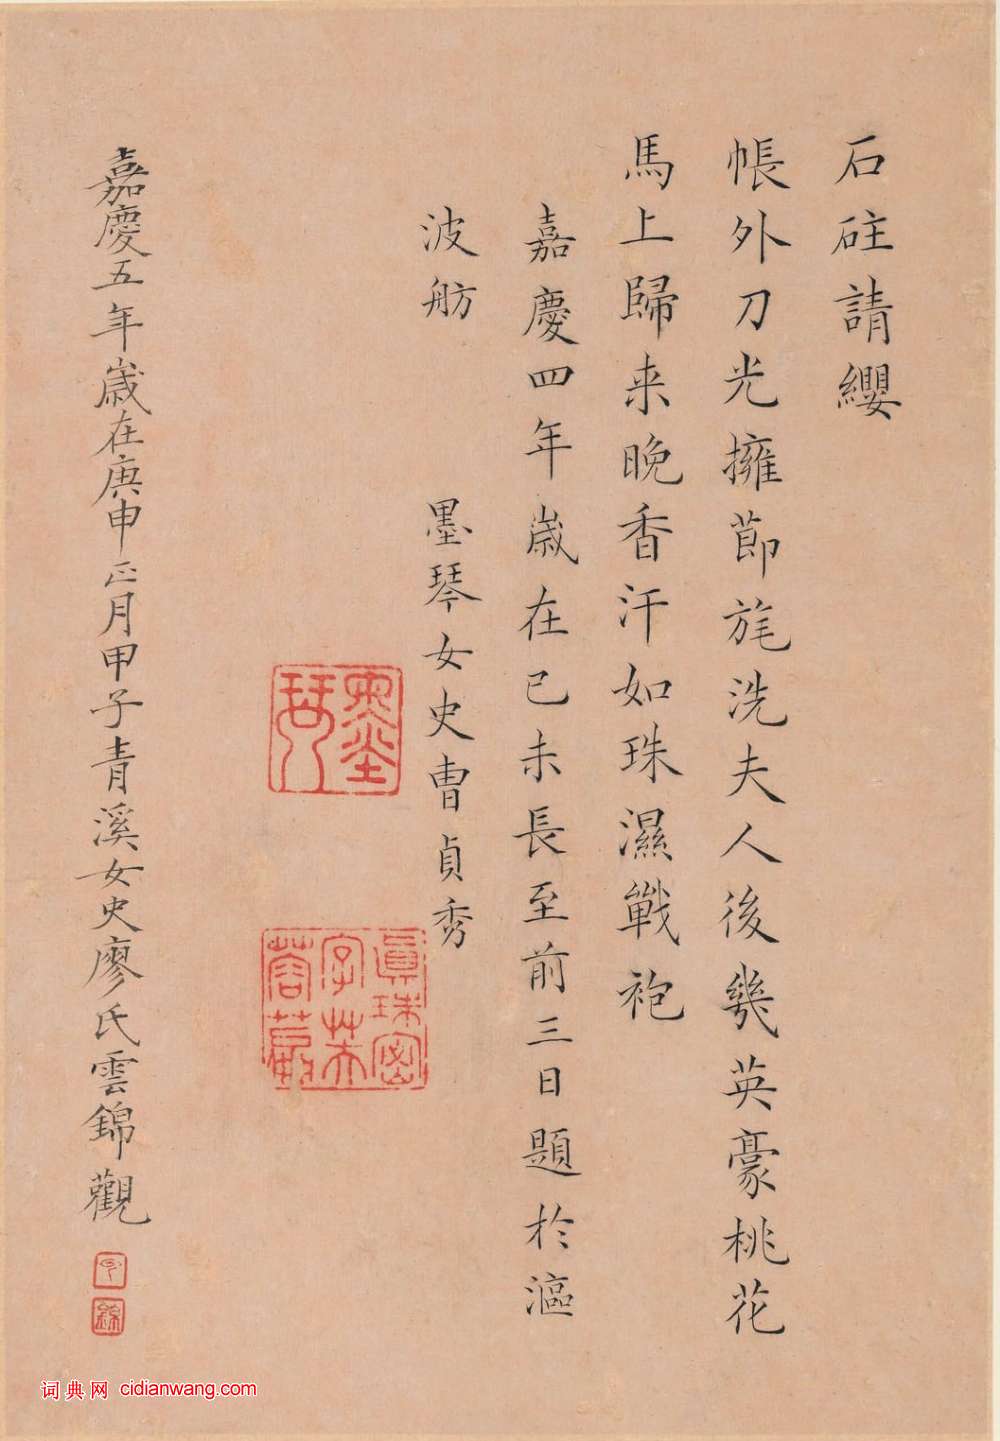 石砫請纓
帳外刀光擁節旄洗夫人後幾英豪桃花
馬上歸来晚香汗如珠濕戰袍
嘉慶四年歲在已未長至前三日題於漚
波舫
墨琴女史曹貞秀
墨琴
真珠密字芙蓉篆
嘉慶五年歲在庚申正月甲子青溪女史廖氏雲錦觀
雲
錦
词典网 cidianwang.com